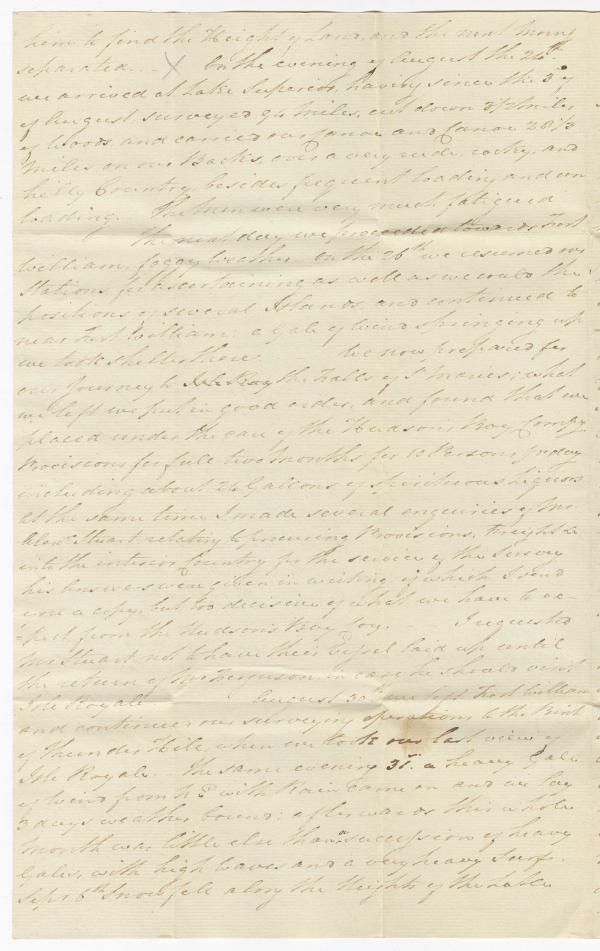 him to find the Height of Land, and the next Morng
separated. - - X On the evening of August the 24th
we arrived at Lake Superior, having since the 3d of
of August surveyed 94 Miles, cut down 3 1/2 Miles
of Woods and carried our Canoe and 28 1/3
Miles on our Backs, over a very rude, rocky, and
hilly Country, besides frequent loading and un
loading. The Men were very much fatigued
The next day we proceeded towards Fort
William, foggy Weather on the 26th we resumed our
Stations for ascertaining as well as we could the
positions of several Islands, and continued to
near Fort William; a Gale of Wind springing up
we took shelter there. We now prepared for
our Journey to the Falls of St Maries; what
we left we put in good order, and found that we
placed under the care of the Hudson's Bay Compy
Provisions for full two Months for 10 Persons
including about 24 Gallons of spirituous Liquors
at the same time I made several enquiries of Mr
Alexr Stuart relating to procuring Provisions, Freight &
into the interior Country for the service of the Survey
his answers were given in writing, of which I send
you a copy, but too decisive of what we have to ex-
-pect from the Hudson's Bay Coy. - - I requested
Mr Stuart not to have their Vessel laid up until
the return of Mr Ferguson in case he should visit
Isle Royale August 30th we left Fort William
and continued our surveying operations to the Point
of Thunder Hill, when we took our last view of
Isle Royale. The same evening 31st a heavy Gale
of Wind from with Rain came on and we lay
3 days weather bound; afterwards this whole
Month was little else than a succession of heavy
Gales, with high Waves and a very heavy Surf.
Sept 6th Snow fell along the Heights of the Lake